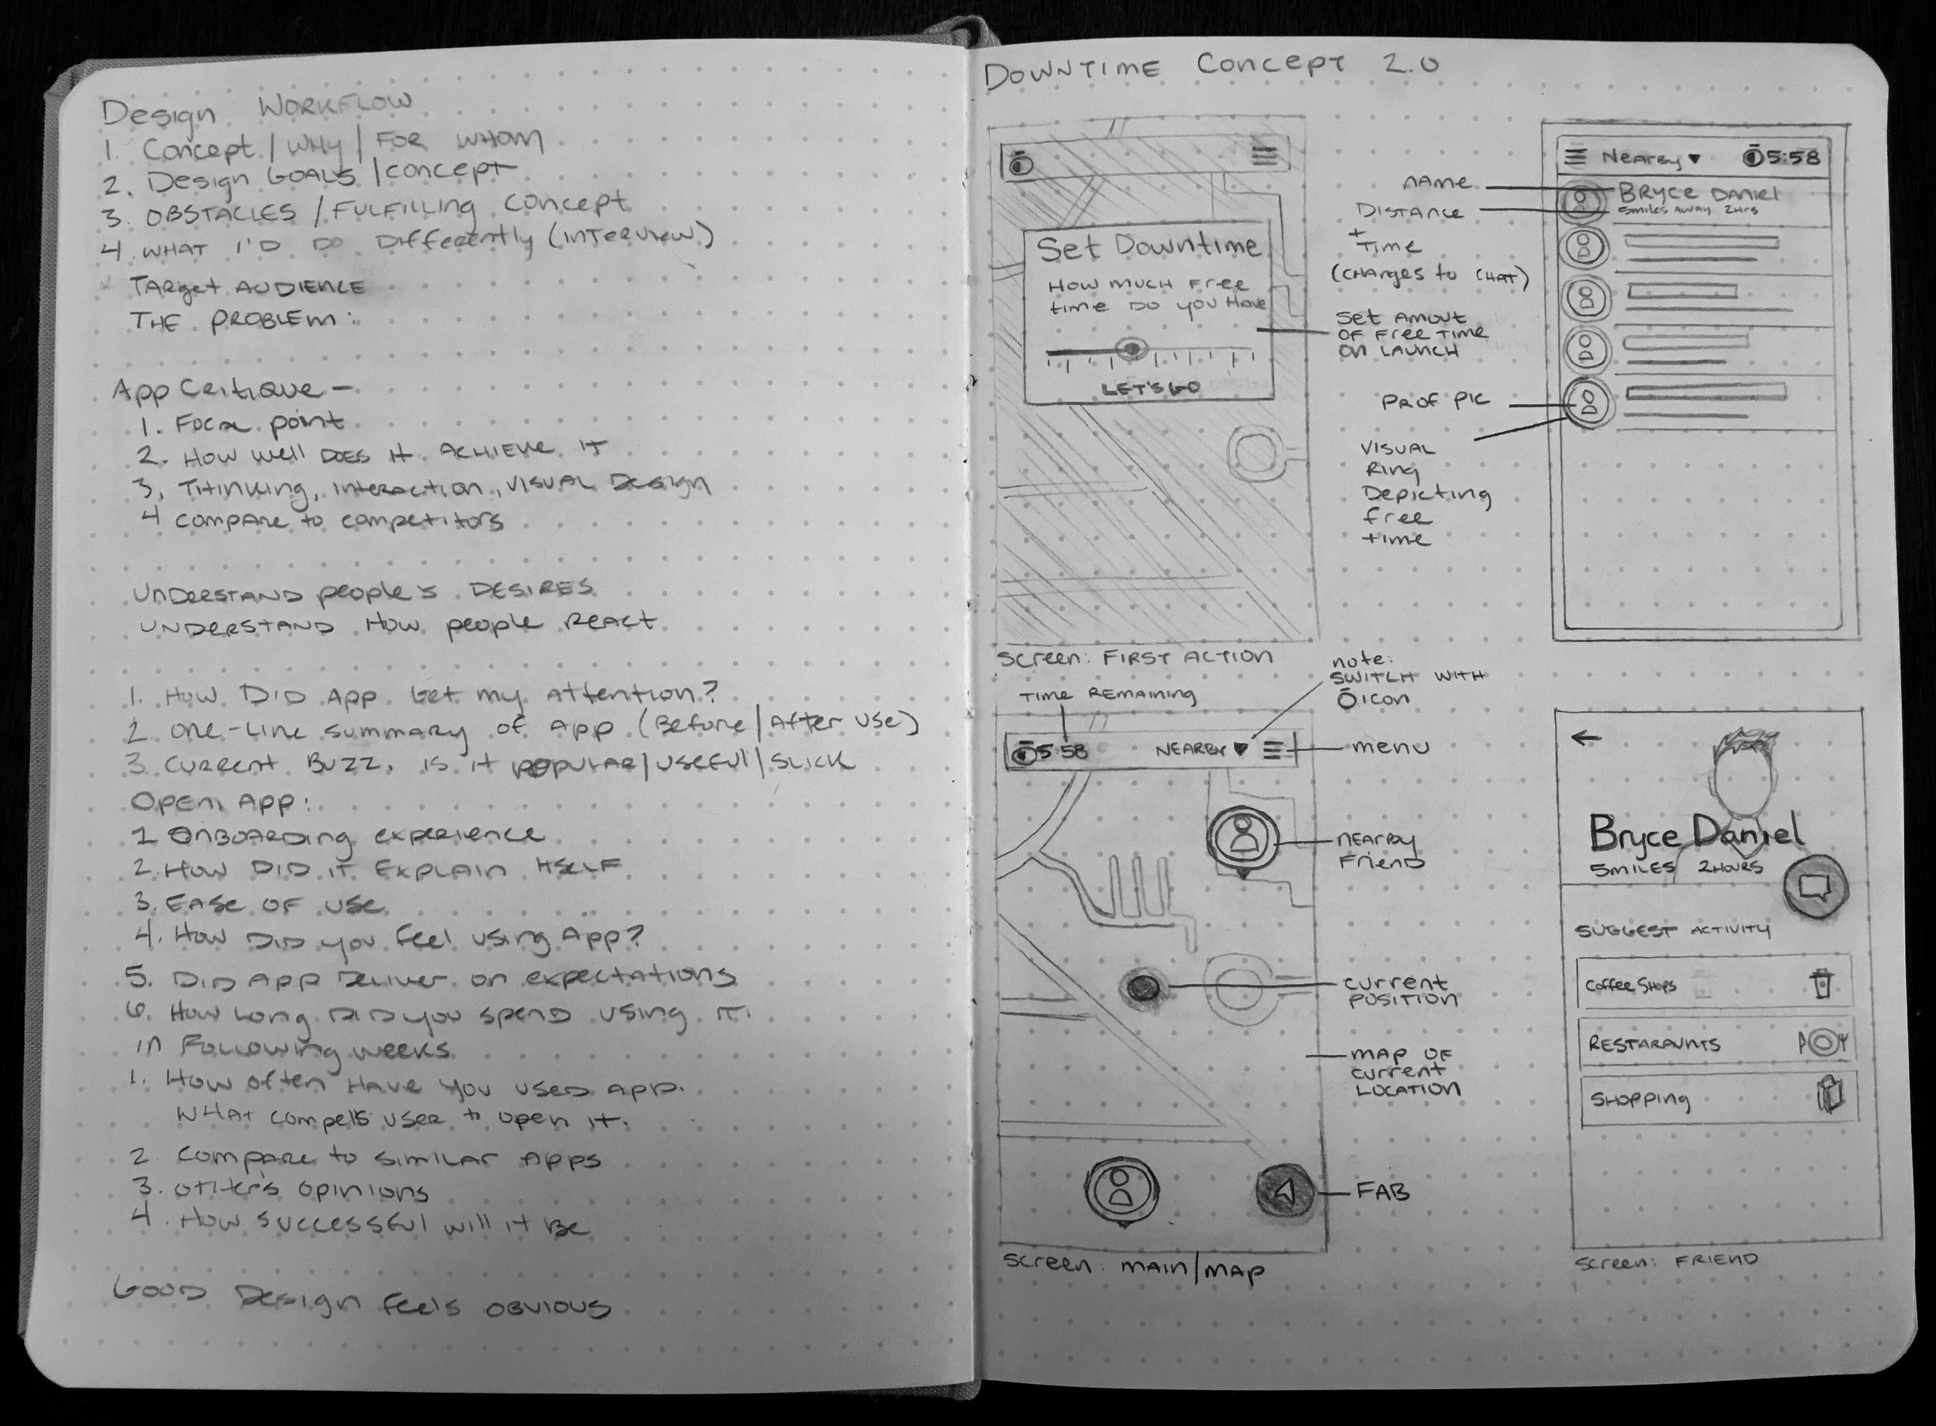 Design Workflow
1. Concept / WHY / FOR WHOM
2. Design GOALS / concept
3. OBSTACLES / FULFILLING Concept
4 WHAT I'D DO Differently (Interview)
TARget AUDIENCE
THE PROBLEM:
App Critique -
1. Focal point
2. How well DOES IT ACHIEVE IT
3. THINKING, INTERACTION, VISUAL Design
4 compare to competitors
UNDERSTAND people's DESIRES
UNDERSTAND How people REACT
1. How DID App Get my Attention?
2 One-Line summary of App (Before / After use)
3 Current Buzz, is it popular / useful / SLICK
OPEN APP:
1 ONBOARDING experience
2. HOW DID IT EXPLAIN ITSELF
3. EASE OF USE
4. How DID you feel using App?
5. DID APP Deliver on expectations
6. How Long DID you spend using IT.
in Following weeks
1. How often HAVE You USED APP.
WHAT compells user to open it.
2 Compare to similar Apps
3. OTHERS opinions
4. How successful will it BE
GOOD Design feels OBVIOUS
DOWNTIME CONCEPT 2.0
Set Downtime
How much free
time DO you HAVE
LET'S GO
Screen: FIRST ACTION
name
DISTANCE
+
TIME
(CHANGES to CHAT)
Set AMOUT
OF Free TIME
ON LAUNCH
PROF PIC
VISUAL
RING
Depicting
free
time
Nearby 5:58
BRYCE DANIEL
5miles AWAY 2Hrs
TIME REMAINING
note:
SWITCH WITH
ICON
5:58 NEARBY
menu
NEARBY
Friend
CURRENT
POSITION
MAP OF
current
LOCATION
FAB
Screen: MAIN/MAP
Bryce Daniel
5MILES 2HOURS
SUGGEST ACTIVITY
Coffee Shops
RESTARAUNTS
SHOPPING
Screen: FRIEND